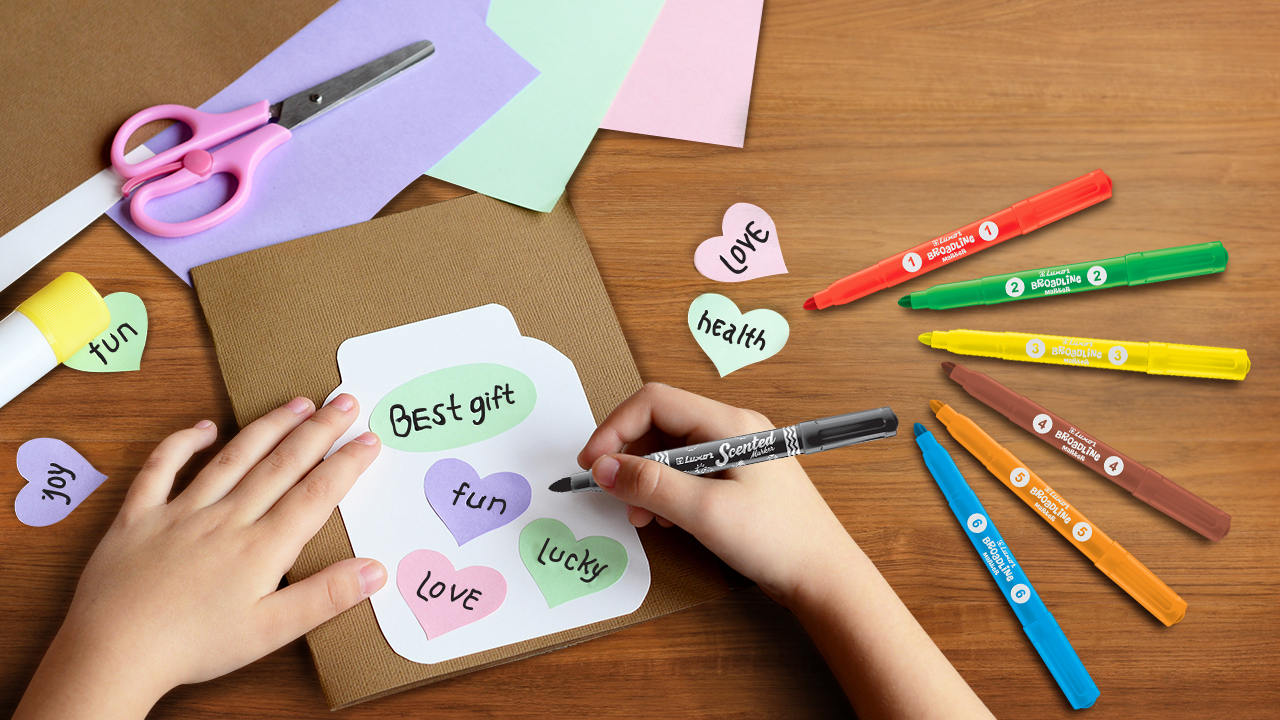 LOVE
health
fun
joy
BEST gift
fun
Lucky
LOVE
Luxor
Scented
Marker
1 Luxor BROADLINE Marker 1
2 Luxor BROADLINE Marker 2
3 Luxor BROADLINE Marker 3
4 Luxor BROADLINE Marker 4
5 Luxor BROADLINE Marker 5
6 Luxor BROADLINE Marker 6